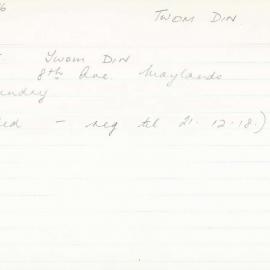 6
TWOM DIN
YWOM DIN
8th Ave. Maylands
undry
ied - reg til 21.12.18.)